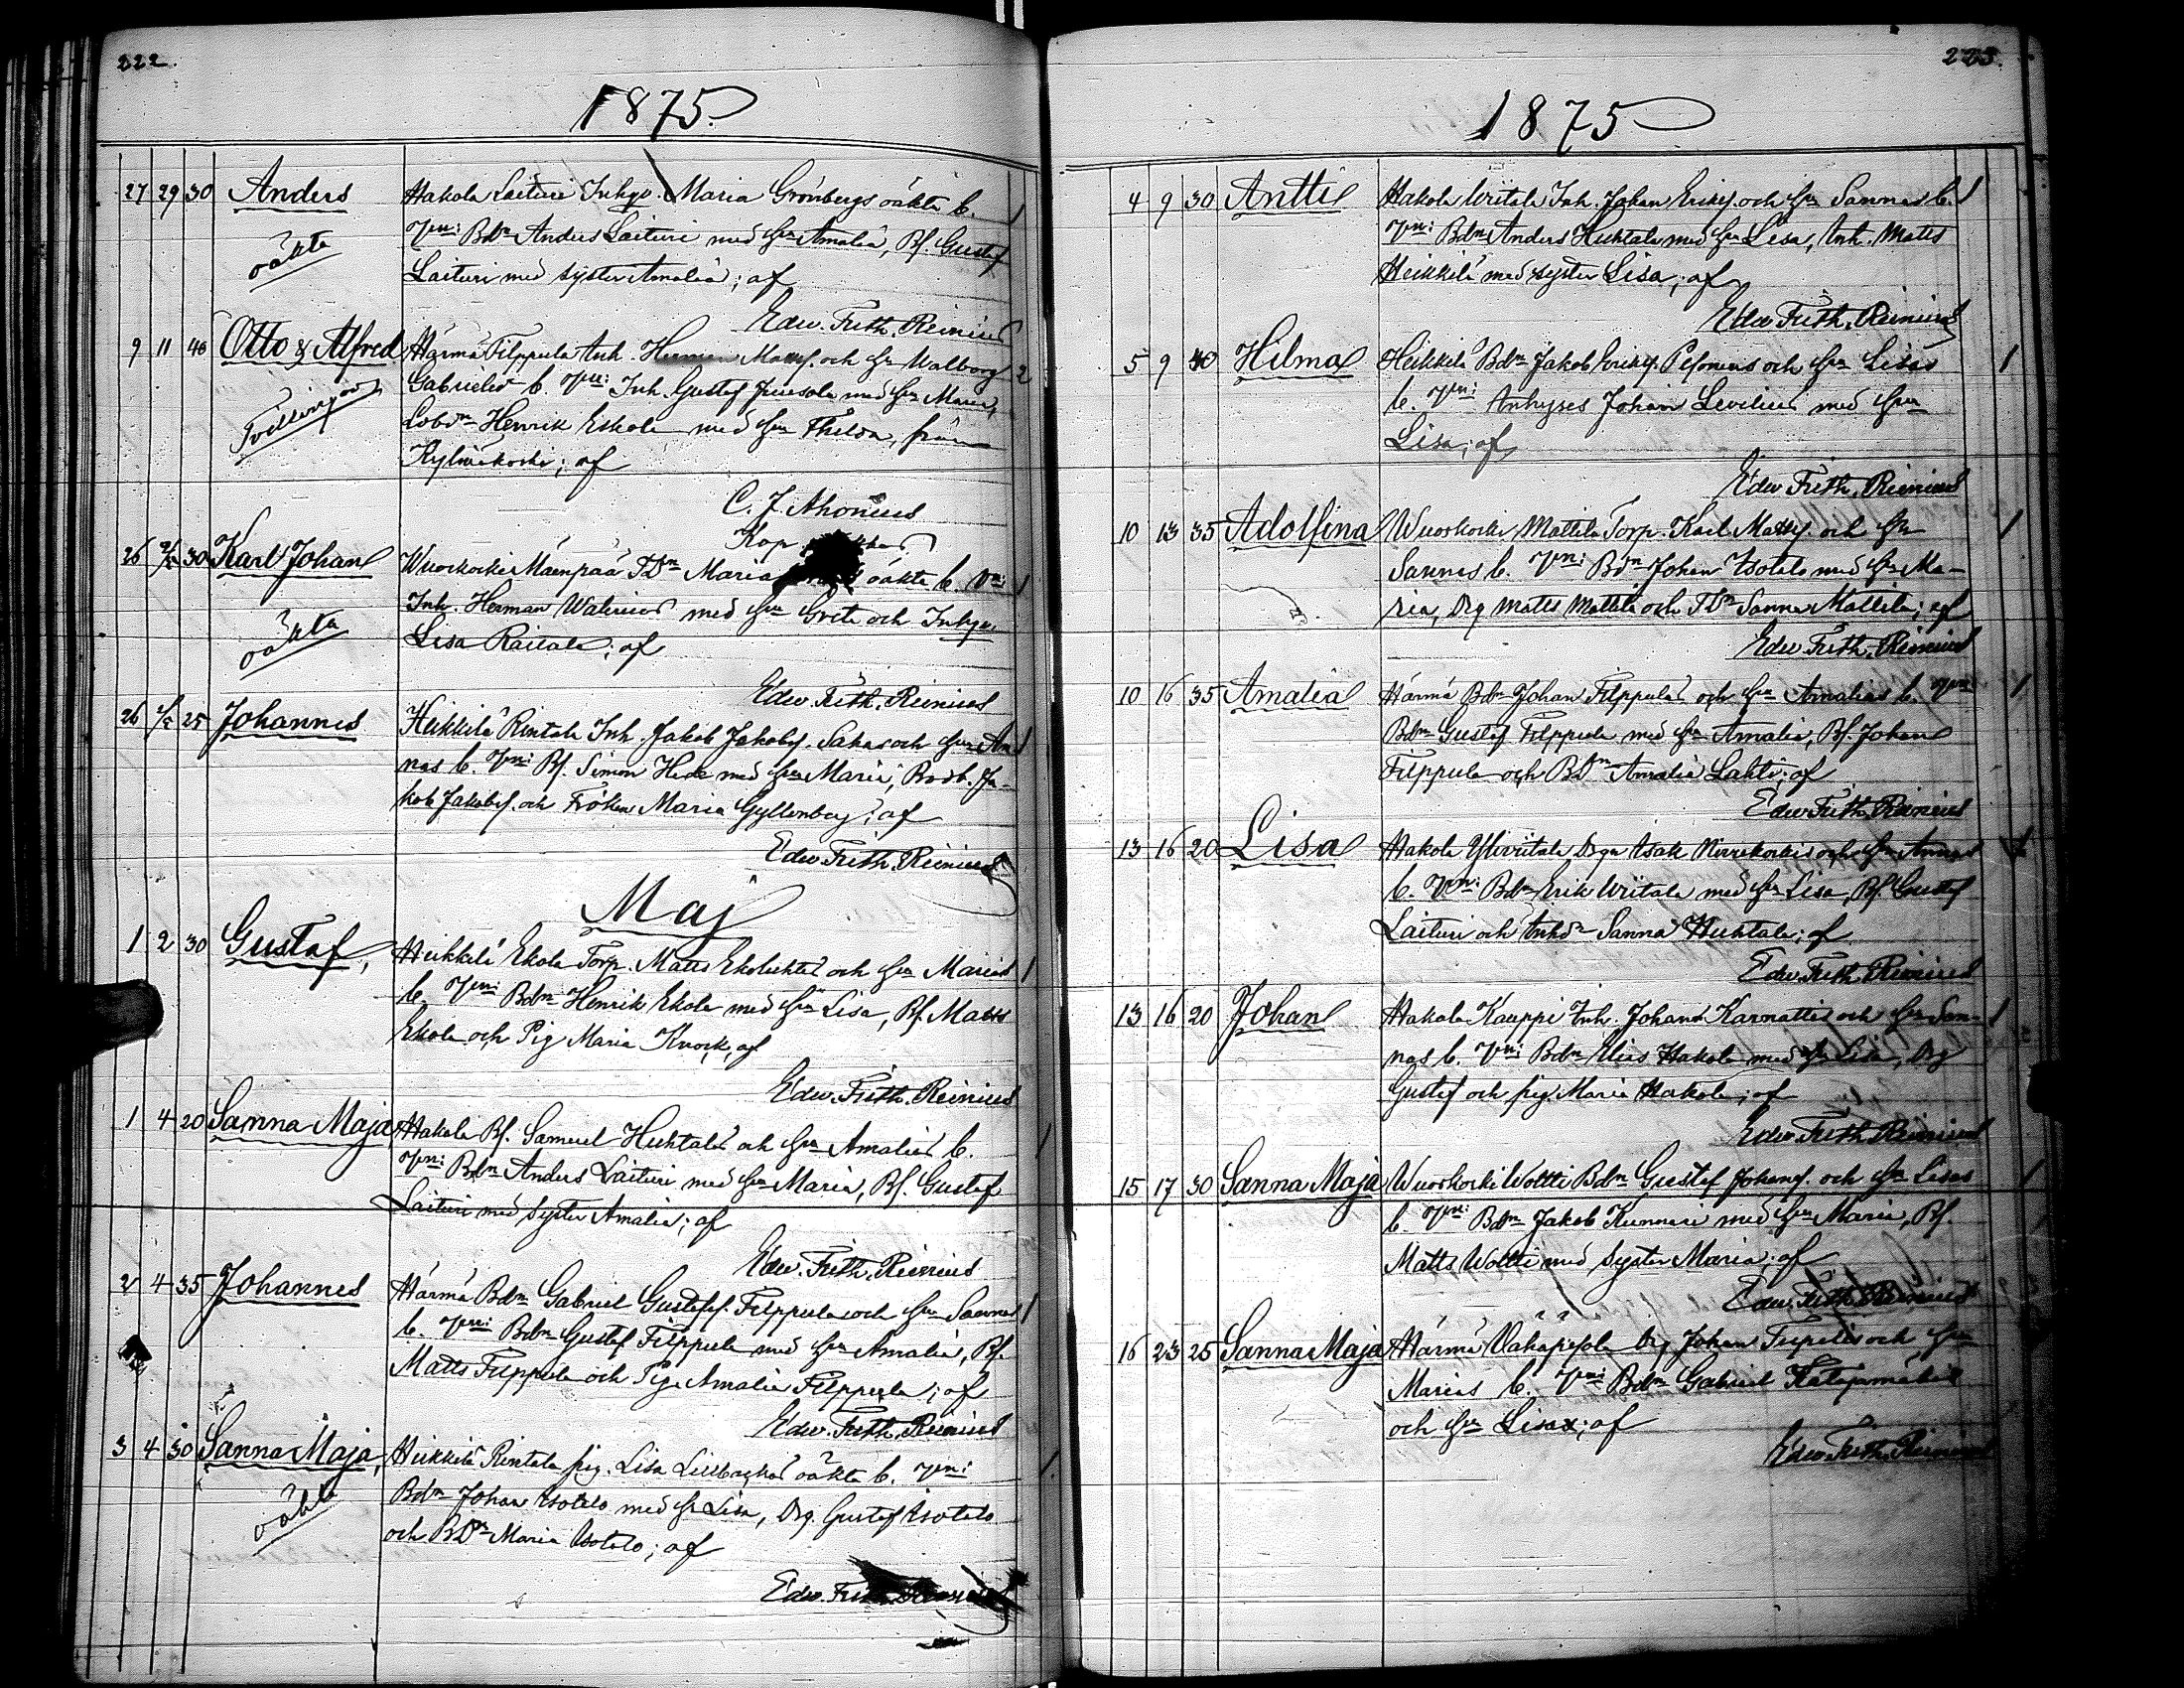 222.
1875.
27 29 30 Anders Hakola Laituri Inhys. Maria Grönbergs oäkta b.
oäkta Vn: Bdn Anders Laituri med hu Amalia, Bs. Gustaf
Laituri med syster Amalia; af
Edw. Frith. Reinius
9 11 40 Otto & Alfred Härmä Filppula Inh. Herman Matss. och hu Walborg 2
Tvillingar Gabrielsd b. Vni: Inh. Gustaf Juusola med hu Maria,
Lobdn Henrik Eskola med hu Thilda, från
Kyliäkoski; af
C. J. Ahonius
Kap.
26 2/5 30 Karl Johan Wuorkoski Mäenpää TDr Maria oäkta b. Vni: 1
oäkta Inh. Herman Walenius med hu Greta och Inhys
Lisa Raitala; af
Edw. Frith. Reinius
26 2/5 25 Johannes Heikkilä Rintala Inh. Jakob Jakobs. Sakas och hu An- 1
nas b. Vni: Bs. Simon Heik med hu Maria, Bodb. Ja-
kob Jakobs. och Fröken Maria Gyllenberg; af
Edw. Frith. Reinius
Maj
1 2 30 Gustaf, Heikkilä Ekola Torp. Matts Ekoluhtas och hu Marias 1
b. Vni: Bdn Henrik Ekola med hu Lisa, Bs. Matts
Ekola och Pig Maria Knock, af
Edw. Frith. Reinius
1 4 20 Sanna Maja Hakola Bs. Samuel Huhtalas och hu Amalias b. 1
Vni: Bdn Anders Laituri med hu Maria, Bs. Gustaf
Laituri med syster Amalia; af
Edw. Frith. Reinius
2 4 35 Johannes Härmä Bdn Gabriel Gustafss. Filppulas och hu Sannas 1
b. Vni: Bdn Gustaf Filppula med hu Amalia, Bs.
Matts Filppula och Pig. Amalia Filppula; af
Edw. Frith. Reinius
3 4 30 Sanna Maja, Heikkilä Rintala pig. Lisa Lillbackas oäkta b. Vni: 1.
oäkta Bdn Johan Isotalo med h Lisa, Drg. Gustaf Isotalo
och BDr Maria Isotalo; af
Edw. Frith. Reinius
223.
1875
4 9 30 Antti Hakola Wiitala Inh. Johan Eriks. och hu Sannas b. 1
Vni: Bdn Anders Huhtala med hu Lisa, Inh. Matts
Heikkilä med syster Lisa; af
Edw. Frith. Reinius
5 9 30 Hilma Heikkilä Bdn Jakob Eriks. Pesonens och hu Lisas 1
b. Vni: Inhyses Johan Levelius med hu
Lisa; af
Edw. Frith. Reinius
10 13 35 Adolfina Wuorkoski Mattila Torp. Karl Matss. och hu 1
Sannas b. Vni: Bdn Johan Isotalo med hu Ma-
ria, Drg Matts Mattila och TDr Sanna Mattila; af
Edw. Frith. Reinius
10 16 35 Amalia Härmä Bdn Johan Filppulas och hu Amalias b. Vni: 1
Bdn Gustaf Filppula med hu Amalia, Bs. Johan
Filppula och BDr Amalia Lahti; af
Edw. Frith. Reinius
13 16 20 Lisa Hakola Yliviitala Drgn Isak Nirrekoskis och hu Annas 1
b. Vni: Bdn Erik Wiitala med hu Lisa, Bs. Gustaf
Laituri och Inhdr Sanna Huhtala; af
Edw. Frith. Reinius
13 16 20 Johan Hakola Kauppi Inh. Johan Karnattis och hu San- 1
nas b. Vni: Bdn Elias Hakola med hu Lisa, Drg
Gustaf och pig. Maria Hakola; af
Edw. Frith. Reinius
15 17 30 Sanna Maja Wuorkoski Woltti Bdn Gustaf Johans. och hu Lisas 1
b. Vni: Bdn Jakob Kunnari med hu Maria, Bs.
Matts Woltti med syster Maria; af
Edw. Frith. Reinius
16 23 25 Sanna Maja Härmä Wähäpesola Drg Johan och hu
Marias b. Vni: Bdn Gabriel Katajamäki
och hu Lisa; af
Edw. Frith. Reinius